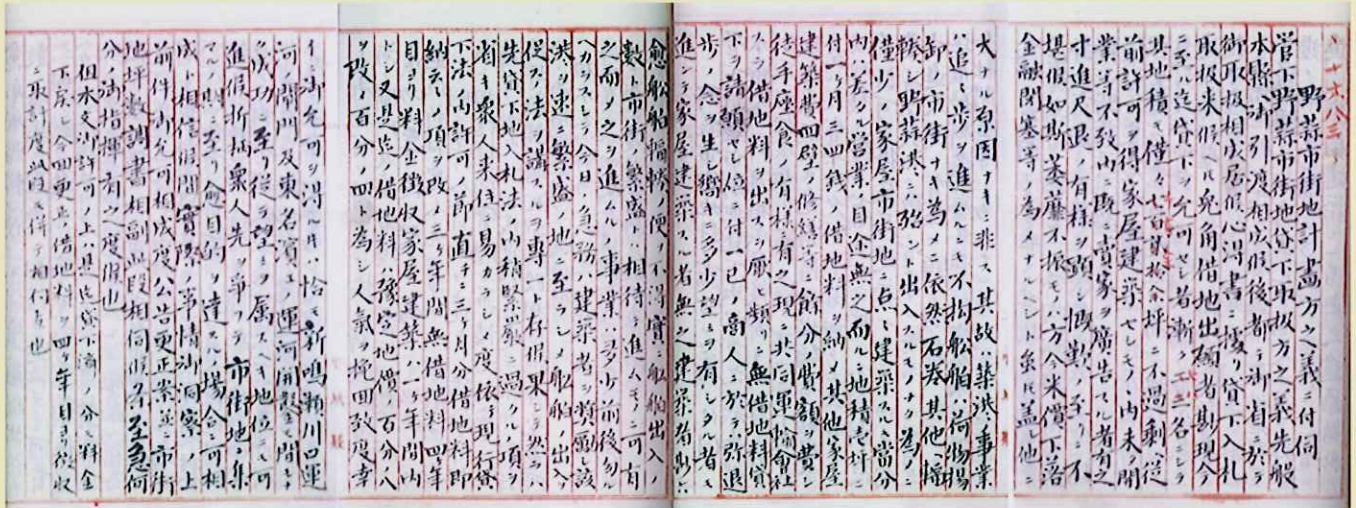 十六八三
野蒜市街地計畫方之義ニ付伺
管下野蒜市街地貸下取扱方之義先般
本縣江御引渡相成候後都テ御省ニ於テ
御取扱相成居候心得書ニ據リ貸下入札
取扱来候ヘ𪜈兎角借地出願者尠現今
ニ至ル迄貸下ケ允可セシ者漸ク
其地積モ僅々七百
坪ニ不過剰ヘ従
前許可ヲ得家屋建築セシモノノ内未開
業等不致ニ既ニ賣家ヲ廣告スル者有之
寸進尺退ノ有様ヲ顕シ慨歎ノ至リニ不
堪假如斯萎靡不振モノハ方今米價下落
金融閉塞等ノ為メナルヘシト
大ナル原因ナキニ非ス其故ハ築港ノ事業
ハ追々歩ヲ進ムルニモ不拘船舶ハ荷物揚
卸ノ市街ナキ為メニ依然石巻其他ヘ
輳シ野蒜港ニハ殆ント出入スルモノナク為ニ
僅少ノ家屋市街地ニ点々建築スルモ當分
内ハ差タル営業ノ目途無之而ルニ地積壱坪ニ
付一ヶ月三四銭ノ借地料ヲ納メ其他家屋
建築費四壁ノ修繕等ニ餘分ノ費額ヲ費シ
徒手座食ノ有様有之現ニ共同運輸會社
スラ借地料ヲ出スヲ厭ヒ類リニ無借地料貸
下ヲ請願セシ位ニ付一己ノ商人ニ於テ弥退
歩ノ念ヲ生シ嚮キニ多少望ミヲ有シタル者モ
進ンテ家屋建築スル者無之建築者尠ケレハ
愈船舶輻輳ノ便ヲ不得實ニ船舶出入ノ
数ト市街ノ繁盛トハ相待テ進ムモノニ可有
之而メ之ヲ進ムルノ事業ハ多少前後勿ル
ヘカラスシテ今日ノ急務ハ建築者ヲ奨勵シ該
港ヲ速ニ繁盛ノ地ニ至ラシメ船舶ノ出入ヲ
促スノ法ヲ講スルヲ専一ト存候果シテ然ラハ
先貸下地入札法ノ内稍緊
ニ過クルノ項ヲ
省キ衆人来住ニ易カラシメ度依テ現行貸
下法ノ内許可ノ節直チニ三ヶ月分借地料即
納云々ノ項ヲ改メ三ヶ年間無借地料四年
目ヨリ料金徴収家屋建築ハ一ヶ年間内
トシ又是迄ノ借地料ハ豫定地價ノ百分ノ八
ヲ改メ百分ノ四ト為シ人氣ヲ挽回致度幸
イニ御允可ヲ得ル片ハ恰モ新鳴瀬川口運
河ノ閘門及東名濱エノ運河開鑿モ間モ
ク成功ニ至リ従テ望ミヲ属スヘキ地位ニモ可
進候折柄衆人先ヲ争フテ市街地ニ集
マルノ期ニ至リ愈目的ヲ達スル場合ニ可相
成ト相信候間實際ノ事情御洞察ノ上
前件御允可相成度公告更正案並ニ市街
地坪数調書相副此段相伺候条至急何
分ノ御指揮有之度候也
但本文御許可ノ上ハ是迄貸下濟ノ分モ料金
下戻シ今四更正ノ借地料ヲ四ヶ年目ヨリ徴収
ニ取計度此段モ併テ相伺候也